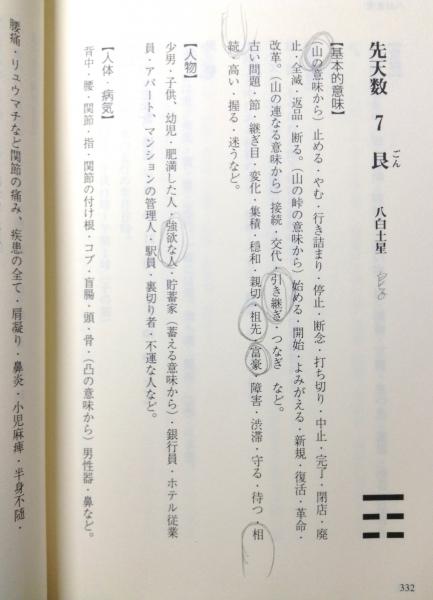 先天数 7 艮 八白土星
ごん
【基本的意味】
(山の意味から)止める・やむ・行き詰まり・停止・断念・打ち切り・中止・完了・閉店・廃
止・全滅・返品・断る。(山の峠の意味から)始める・開始・よみがえる・新規・復活・革命・
改革。(山の連なる意味から)接続・交代・引き継ぎ・つなぎ など。
古い問題・節・継ぎ目・変化・集積・穏和・親切・祖先・富豪・障害・渋滞・守る・待つ・相
続・高い・握る・迷うなど。
【人物】
少男・子供、幼児・肥満した人・強欲な人・貯蓄家(蓄える意味から)・銀行員・ホテル従業
員・アパート、マンションの管理人・駅員・裏切り者・不運な人など。
【人体・病気】
背中・腰・関節・指・関節の付け根・コブ・盲腸・頭・骨・(凸の意味から)男性器・鼻など。
腰痛・リュウマチなど関節の痛み、疾患の全て・肩凝り・鼻炎・小児麻痺・半身不随・
332